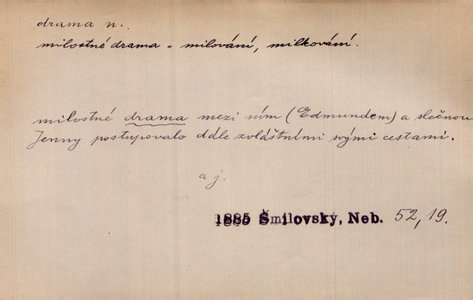 drama n.
milostné drama = milování, milkování.
milostné drama mezi ním (Edmundem) a slečnou
Jenny postupovalo dále zvláštními svými cestami.
a j.
1885 Šmilovský, Neb. 52, 19.